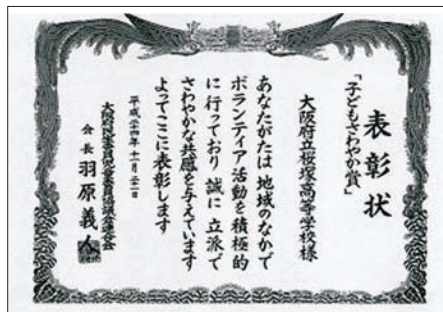 表彰状
「子どもさわやか賞」
大阪府立桜塚高等学校様
あなたがたは 地域のなかで
ボランティア活動を積極的
に行っており 誠に立派で
さわやかな共感を与えています
よってここに表彰します
平成二十四年十一月二十一日
大阪府民生委員児童委員協議会連合会
会長 羽原義人